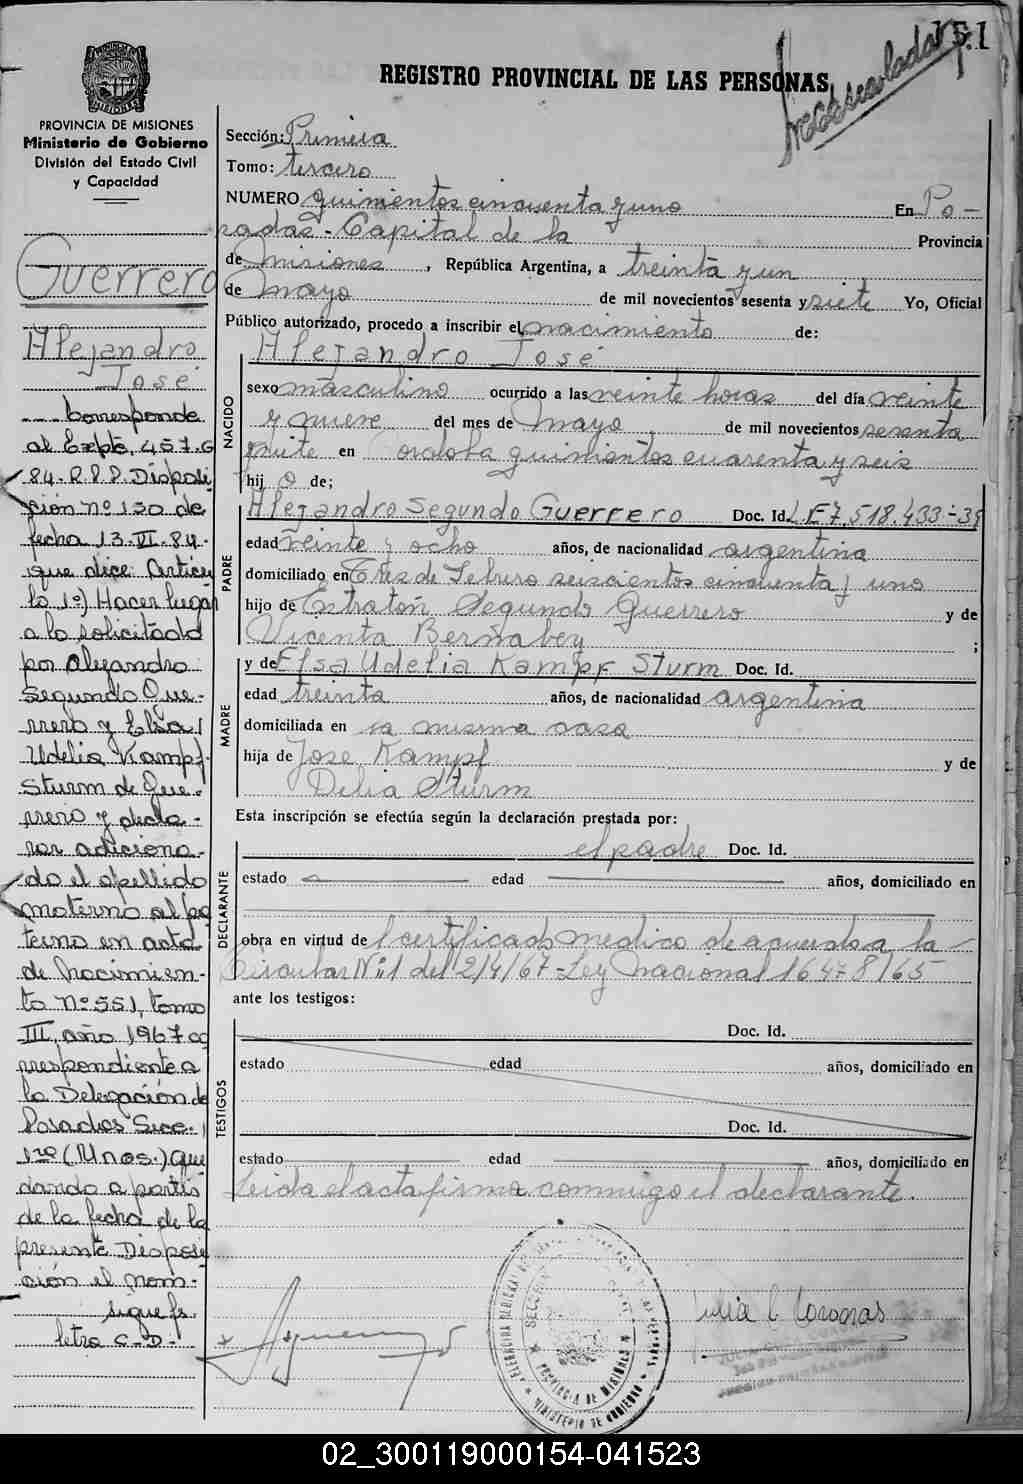 151
REGISTRO PROVINCIAL DE LAS PERSONAS
PROVINCIA DE MISIONES
Ministerio de Gobierno
División del Estado Civil
y Capacidad
Guerrero
Alejandro
José
--- Corresponde
al Expte. 457.G
84.R.P.P. Disposi
ción nº 130 de
fecha 13.VI.84.
que dice: Artícu
lo 1º) Hacer lugar
a lo solicitado
por Alejandro
Segundo Gue-
rrero y Elsa
Udelia Kampf
Sturm de Gue-
rrero y decla-
rar adiciona-
do el apellido
materno al pa
terno en acta
de Nacimien-
to Nº 551, tomo
III, año 1967 co
rrespondiente a
la Delegación de
Posadas Secc.
1ra (Unos.) que
dando a partir
de la fecha de la
presente Disposi
ción el nom-
sigue fs.
letra C-D.-
Sección: Primera
Tomo: tercero
NUMERO quinientos cincuenta y uno En Po-
sadas - Capital de la Provincia
de Misiones, República Argentina, a treinta y un
de Mayo de mil novecientos sesenta y siete Yo, Oficial
Público autorizado, procedo a inscribir el nacimiento de:
Alejandro José
NACIDO
sexo masculino ocurrido a las veinte horas del día veinte
y nueve del mes de Mayo de mil novecientos sesenta
y siete en Cordoba quinientos cuarenta y seis
hijo de;
PADRE
Alejandro Segundo Guerrero Doc. Id. L E 7.518.433-39
edad veinte y ocho años, de nacionalidad argentina
domiciliado en Tres de Febrero seiscientos cincuenta y uno
hijo de Estratón Segundo Guerrero y de
Vicenta Bernabey ;
MADRE
y de Elsa Udelia Kampf Sturm Doc. Id.
edad treinta años, de nacionalidad argentina
domiciliada en la misma casa
hija de José Kampf y de
Delia Sturm
Esta inscripción se efectúa según la declaración prestada por:
DECLARANTE
el padre Doc. Id.
estado edad años, domiciliado en
obra en virtud del certificado medico de acuerdo a la
Circular Nº 1 del 2/4/67 - Ley Nacional 16.478/65
ante los testigos:
TESTIGOS
Doc. Id.
estado edad años, domiciliado en
Doc. Id.
estado edad años, domiciliado en
Leida el acta firma conmigo el declarante.
SECCION
PROVINCIA DE MISIONES
MINISTERIO DE GOBIERNO
Julia C Coronas
02_300119000154-041523